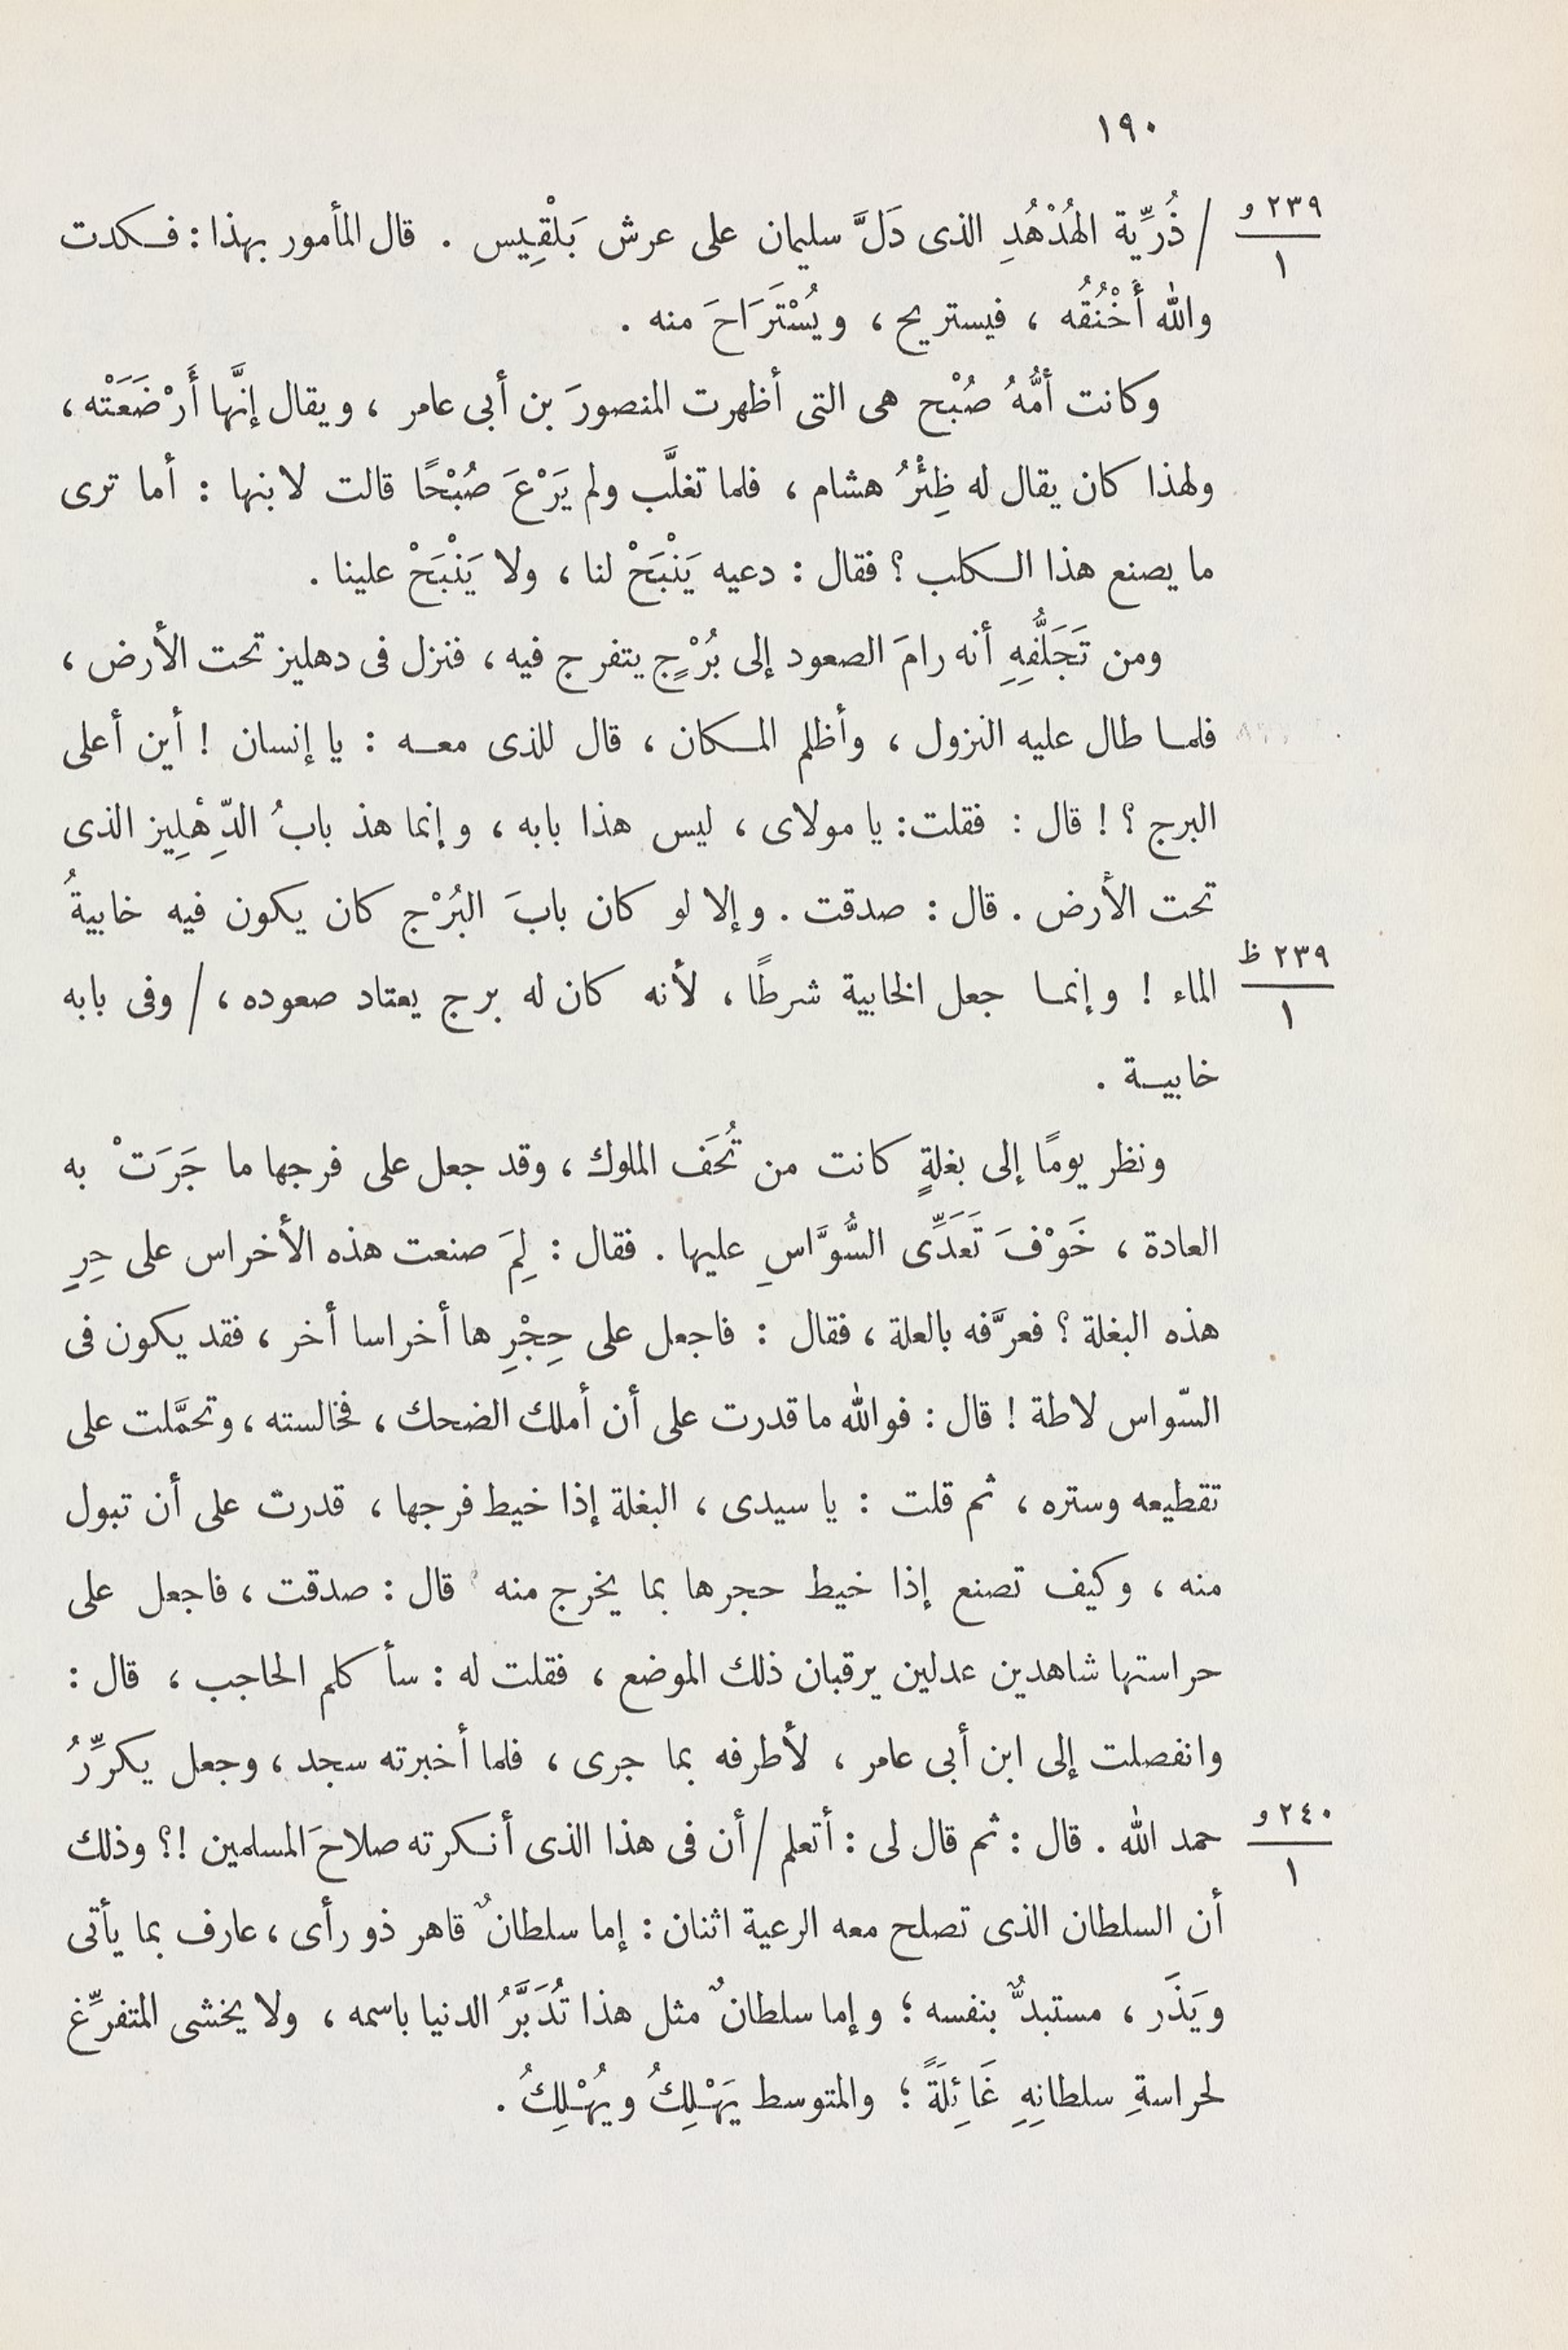 ١٩٠
٢٣٩ و
١
/ ذُرِّية الهُدْهُدِ الذى دَلَّ سليمان على عرش بَلْقِيس . قال المأمور بهذا : فكدت
والله أَخْنُقُه ، فيستريح ، ويُسْتَرَاحَ منه .
وكانت أمُّهُ صُبْح هى التى أظهرت المنصورَ بن أبى عامر ، ويقال إنَّها أَرْضَعَتْه ،
ولهذا كان يقال له ظِئْرُ هشام ، فلما تغلَّب ولم يَرْعَ صُبْحًا قالت لابنها : أما ترى
ما يصنع هذا الكلب ؟ فقال : دعيه يَنْبَحْ لنا ، ولا يَنْبَحْ علينا .
ومن تَجَلُّفِهِ أنه رامَ الصعود إلى بُرْجٍ يتفرج فيه ، فنزل فى دهليز تحت الأرض ،
فلما طال عليه النزول ، وأظلم المكان ، قال للذى معه : يا إنسان ! أين أعلى
البرج ؟ ! قال : فقلت : يا مولاى ، ليس هذا بابه ، وإنما هذ بابُ الدِّهْلِيز الذى
تحت الأرض . قال : صدقت . وإلا لو كان بابَ البُرْج كان يكون فيه خابيةُ
٢٣٩ ظ
١
الماء ! وإنما جعل الخابية شرطًا ، لأنه كان له برج يعتاد صعوده ، / وفى بابه
خابية .
ونظر يومًا إلى بغلةٍ كانت من تُحَف الملوك ، وقد جعل على فرجها ما جَرَتْ به
العادة ، خَوْفَ تَعَدِّى السُّوَّاسِ عليها . فقال : لِمَ صنعت هذه الأخراس على حِرِ
هذه البغلة ؟ فعرَّفه بالعلة ، فقال : فاجعل على حِجْرِها أخراسا أخر ، فقد يكون فى
السّواس لاطة ! قال : فوالله ما قدرت على أن أملك الضحك ، فخالسته ، وتحمَّلت على
تقطيعه وستره ، ثم قلت : يا سيدى ، البغلة إذا خيط فرجها ، قدرت على أن تبول
منه ، وكيف تصنع إذا خيط حجرها بما يخرج منه قال : صدقت ، فاجعل على
حراستها شاهدين عدلين يرقبان ذلك الموضع ، فقلت له : سأكلم الحاجب ، قال :
وانفصلت إلى ابن أبى عامر ، لأطرفه بما جرى ، فلما أخبرته سجد ، وجعل يكرِّرُ
٢٤٠ و
١
حمد الله . قال : ثم قال لى : أتعلم / أن فى هذا الذى أنكرته صلاحَ المسلمين !؟ وذلك
أن السلطان الذى تصلح معه الرعية اثنان : إما سلطانٌ قاهر ذو رأى ، عارف بما يأتى
ويَذَر ، مستبدٌّ بنفسه ؛ وإما سلطانٌ مثل هذا تُدَبَّرُ الدنيا باسمه ، ولا يخشى المتفرِّغ
لحراسةِ سلطانِهِ غَائِلَةً ؛ والمتوسط يَهْلِكُ ويُهْلِكُ .